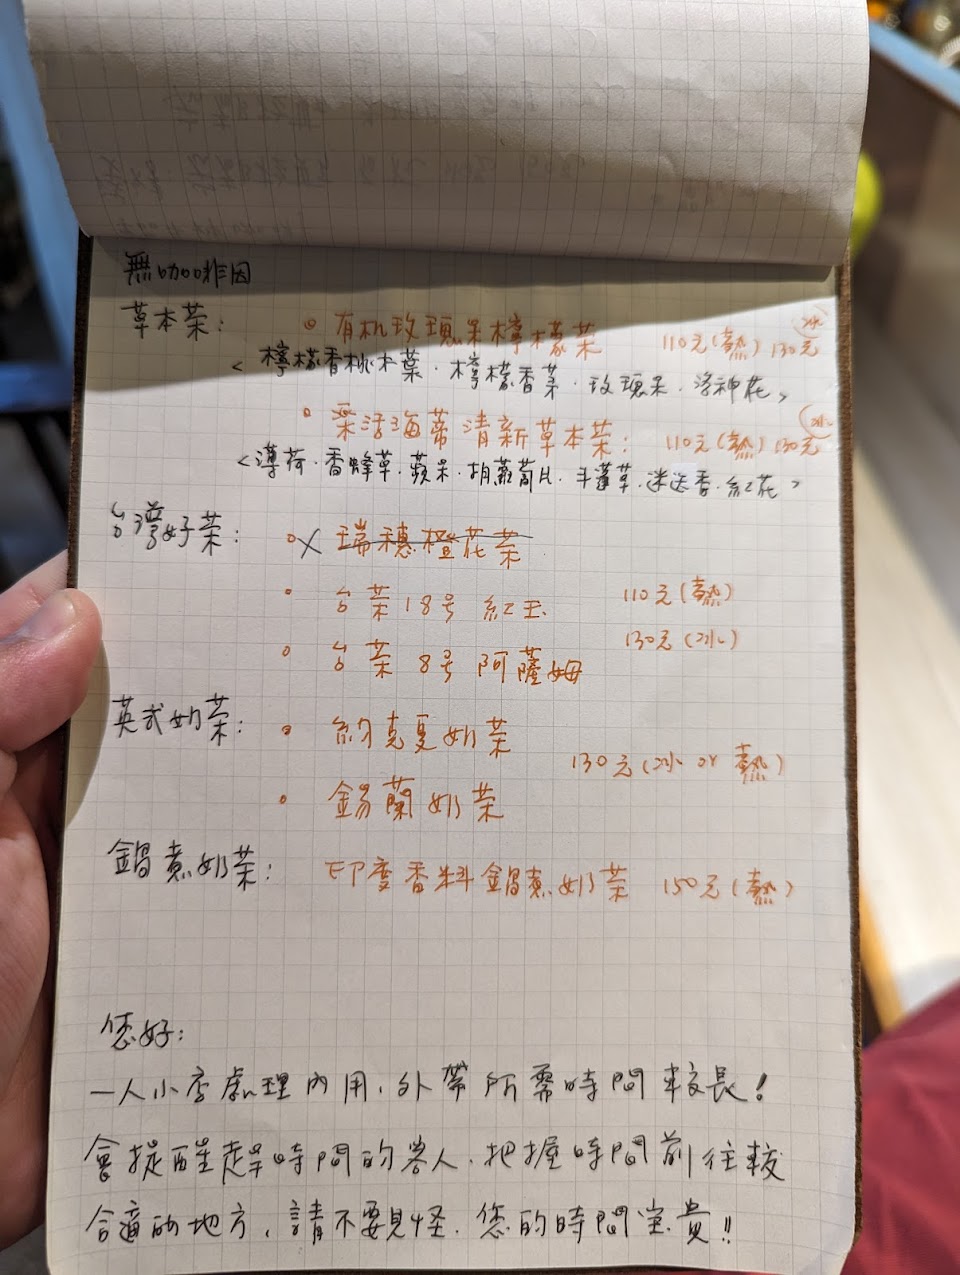 無咖啡因
草本茶：
。有机玫瑰果檸檬茶 110元(熱) 130元(冰)
<檸檬香桃木葉．檸檬香茅．玫瑰果．洛神花>
。樂活海蒂清新草本茶： 110元(熱) 130元(冰)
<薄荷．香蜂草．蘋果．胡蘿蔔片．斗蓬草．迷迭香．紅花>
台灣好茶：
。X 瑞穗橙花茶
。台茶18号 紅玉 110元(熱)
130元(冰)
。台茶 8号 阿薩姆
英式奶茶：
。約克夏奶茶
130元(冰 or 熱)
。錫蘭奶茶
鍋煮奶茶： 印度香料鍋煮奶茶 150元(熱)
您好：
一人小店處理內用，外帶所需時間較長！
會提醒趕時間的客人，把握時間前往較
合適的地方，請不要見怪．您的時間宝貴!!